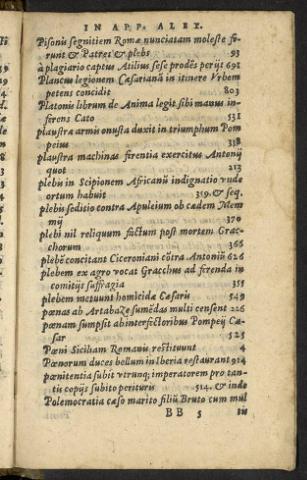 IN APP. ALEX.
Pisonis segnitiem Romæ nunciatam moleste fe-
runt & Patres & plebs 93
à plagiario captus Atilius sese prodēs perijt 691
Plancus legionem Cæsarianā in itinere Vrbem
petens concidit 803
Platonis librum de Anima legit sibi manus in-
ferens Cato 531
plaustra armis onusta duxit in triumphum Pom
peius 338
plaustra machinas firentia exercitus Antonij
quot 213
plebis in Scipionem Africanū indignatio vnde
ortum habuit 319. & seq.
plebis seditio contra Apuleium ob cædem Mem
mij 370
plebi nil reliquum factum post mortem Grac-
chorum 365
plebē concitant Ciceroniani cōtra Antoniū 626
plebem ex agro vocat Gracchus ad ferenda in
comitijs suffragia 355
plebem metuunt homicidæ Cæsaris 549
pœnas ab Artabaze sumēdas multi censent 226
pœnam sumpsit ab interfectoribus Pompeij Cæ-
sar 525
Pœni Siciliam Romanis restituunt 4
Pœnorum duces bellum in Iberia restaurant 914
pœnitentia subit vtrunq; imperatorem pro tan-
tis copijs subito perituris 514. & inde
Polemocratia cæso marito filiū Bruto cum mul
BB 5 tis